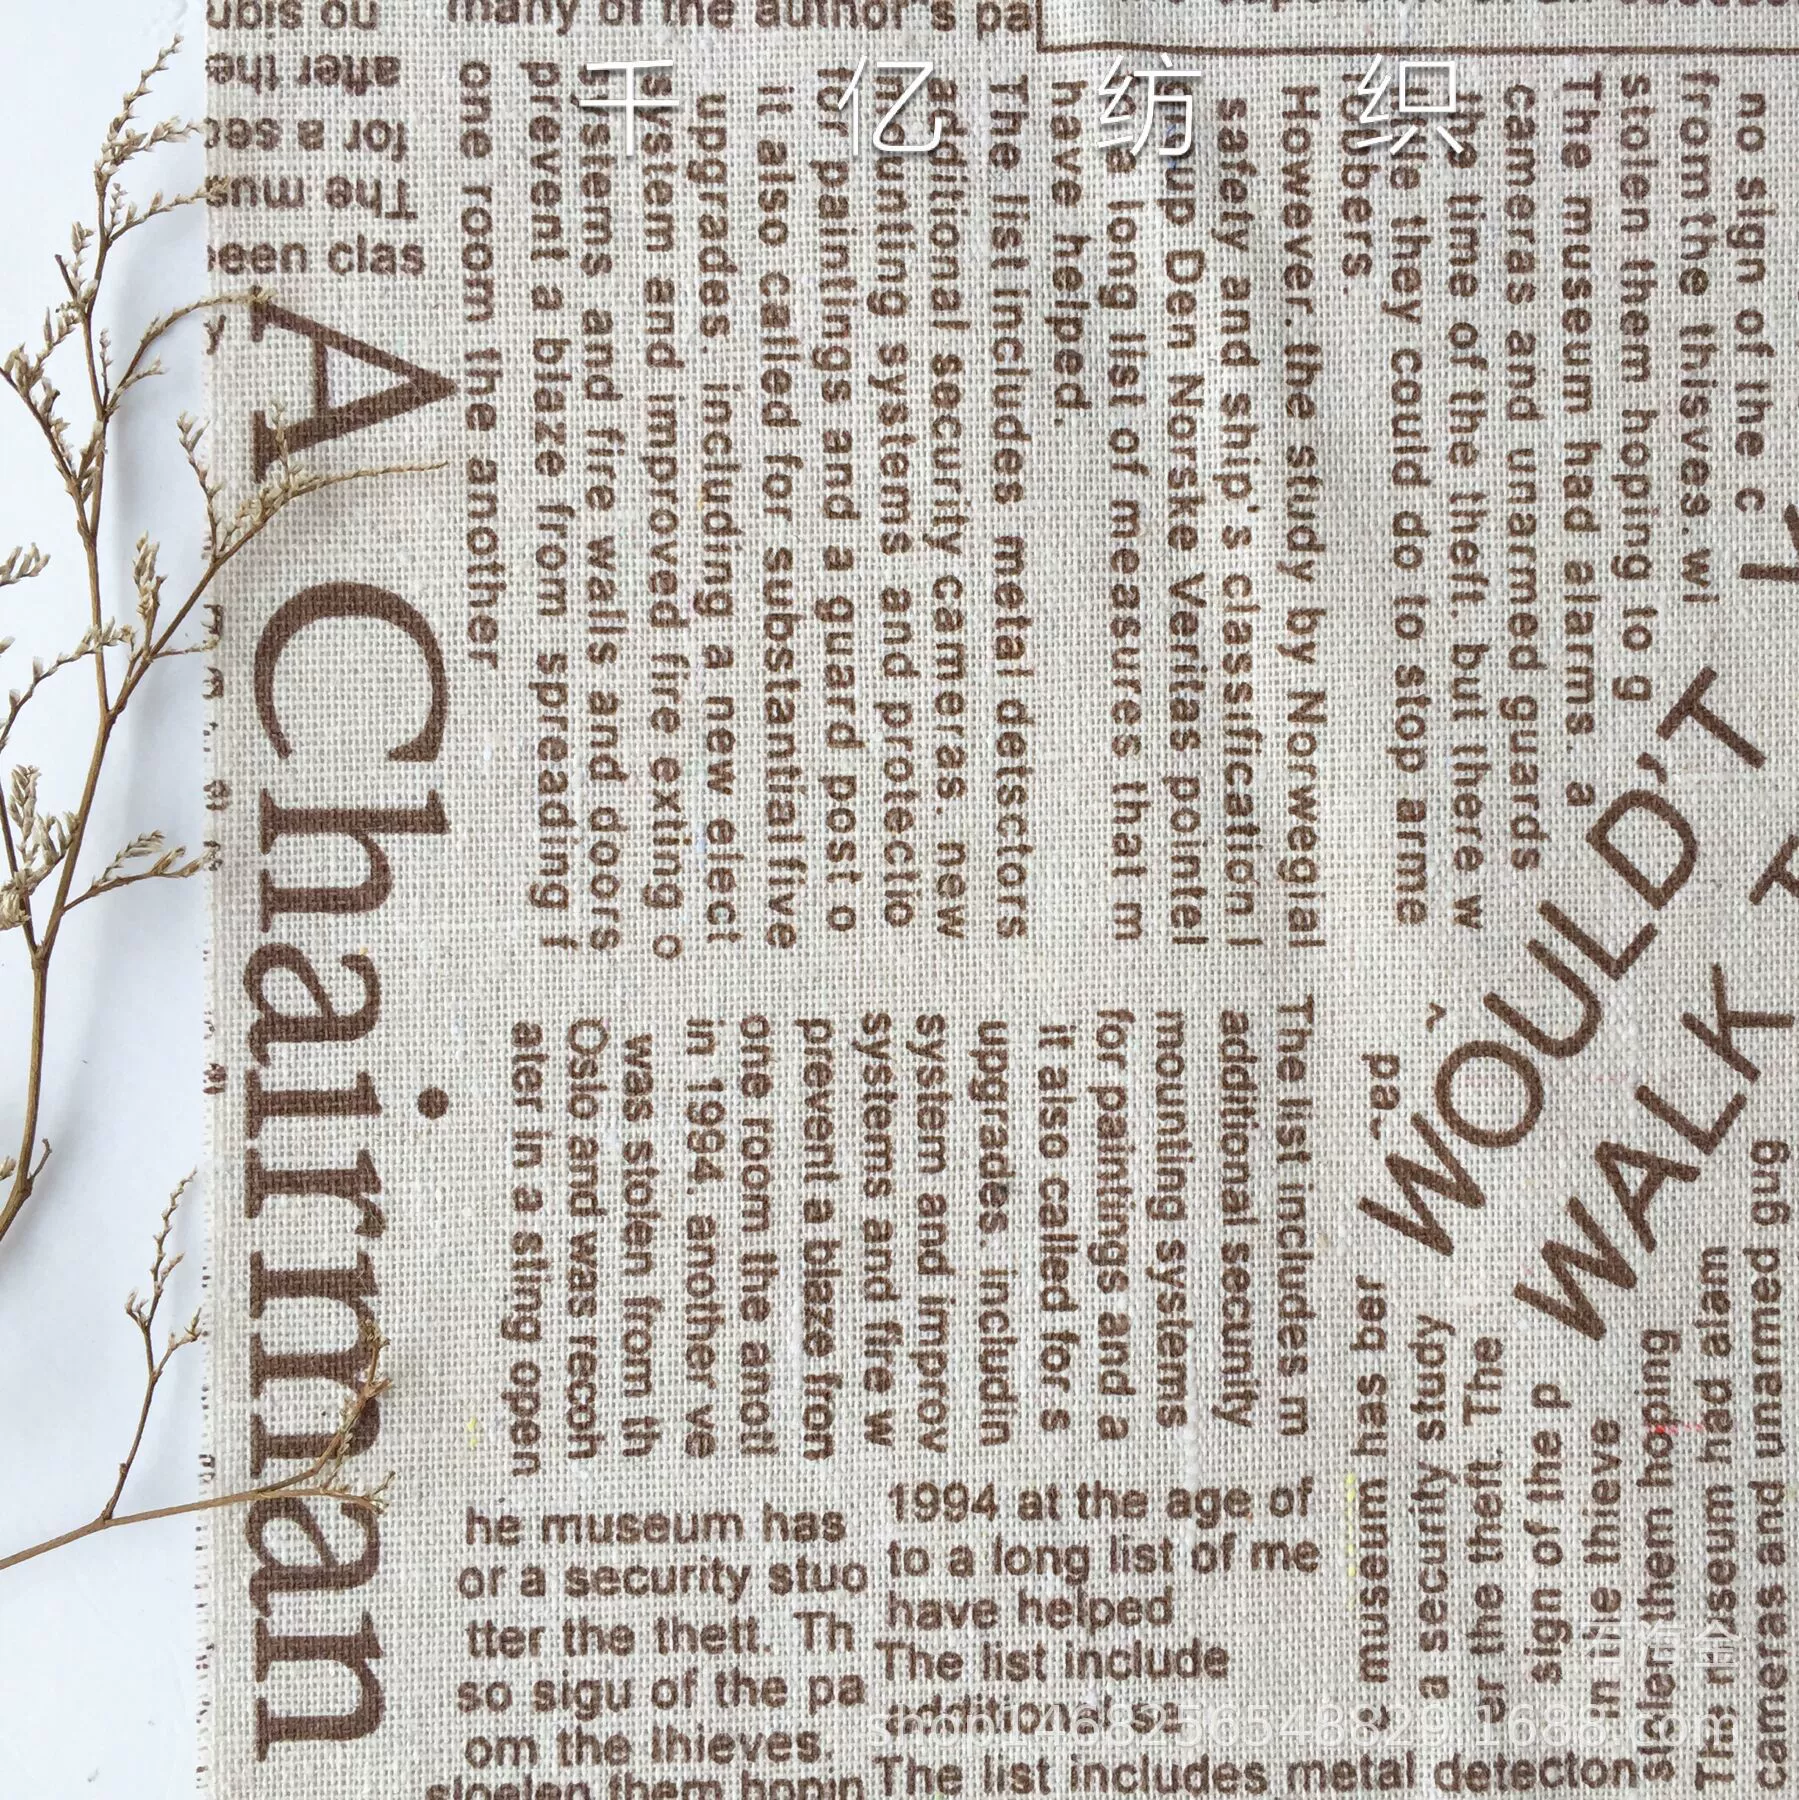 many of the author's pa
千 亿 纺 织
after the
for a sec
The mus
een clas
A Chairman
one room the another
prevent a blaze from spreading f
systems and fire walls and doors
system and improved fire exting o
upgrades. including a new elect
it also cailed for substantialfive
for paintings and a guard post o
mounting systems and protectio
additional security cameras. new
The list includes metal detsctors
have helped.
to a long list of measures that m
group Den Norske Veritas pointel
safety and ship's classification l
However. the study by Norwegial
robbers.
little they could do to stop arme
the time of the theft. but there w
cameras and unarmed guards
The museum had alarms. a
stolen them hoping to g
from the thisves. wi
no sign of the c
WOULD'T
WALK
ater in a sting open
Oslo and was recoh
was stolen from th
in 1994. another ve
one room the anotl
prevent a blaze fron
systems and fire w
system and improv
upgrades. includin
it also called for s
for paintings and a
mounting systems
additional security
The list includes m
pa
he museum has
or a security stuo
tter the thett. Th
so sigu of the pa
om the lhieves.
1994 at the age of
to a long list of me
have helped
The list include
additional se
The list includes metal detecton
museum has ber
a security study
er the theft. The
sign of the p
in the thieve
stolen them hopping
The museum had alam
cameras and unarmed gug
石海金
shop1468256548829.1688.com